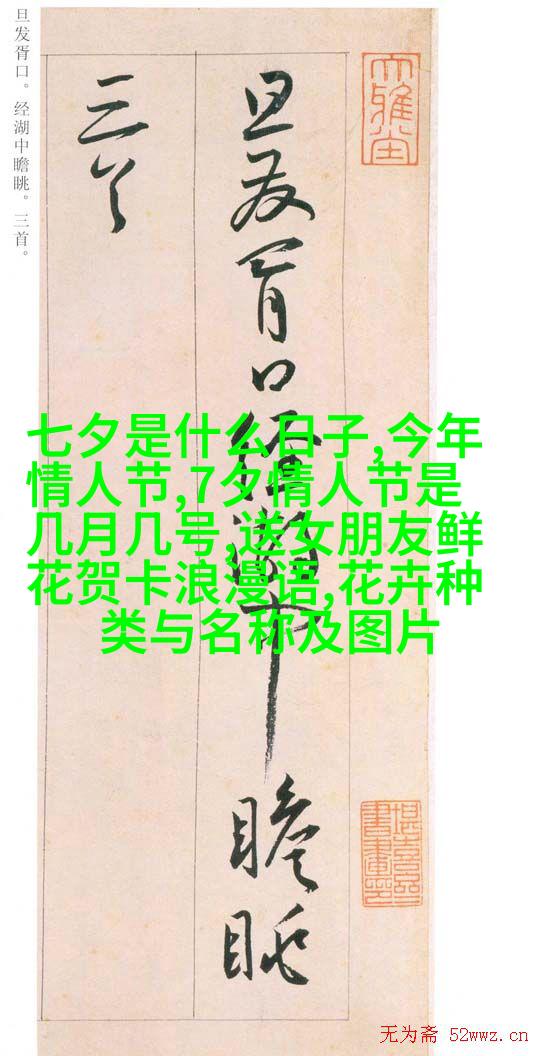 旦发胥口。经湖中瞻眺。三首。
旦发胥口经湖中瞻眺
三首
七夕是什么日子,今年
情人节,7夕情人节是
几月几号,送女朋友鲜
花贺卡浪漫语,花卉种
类与名称及图片
大雅堂
无为斋 52wwz.cn